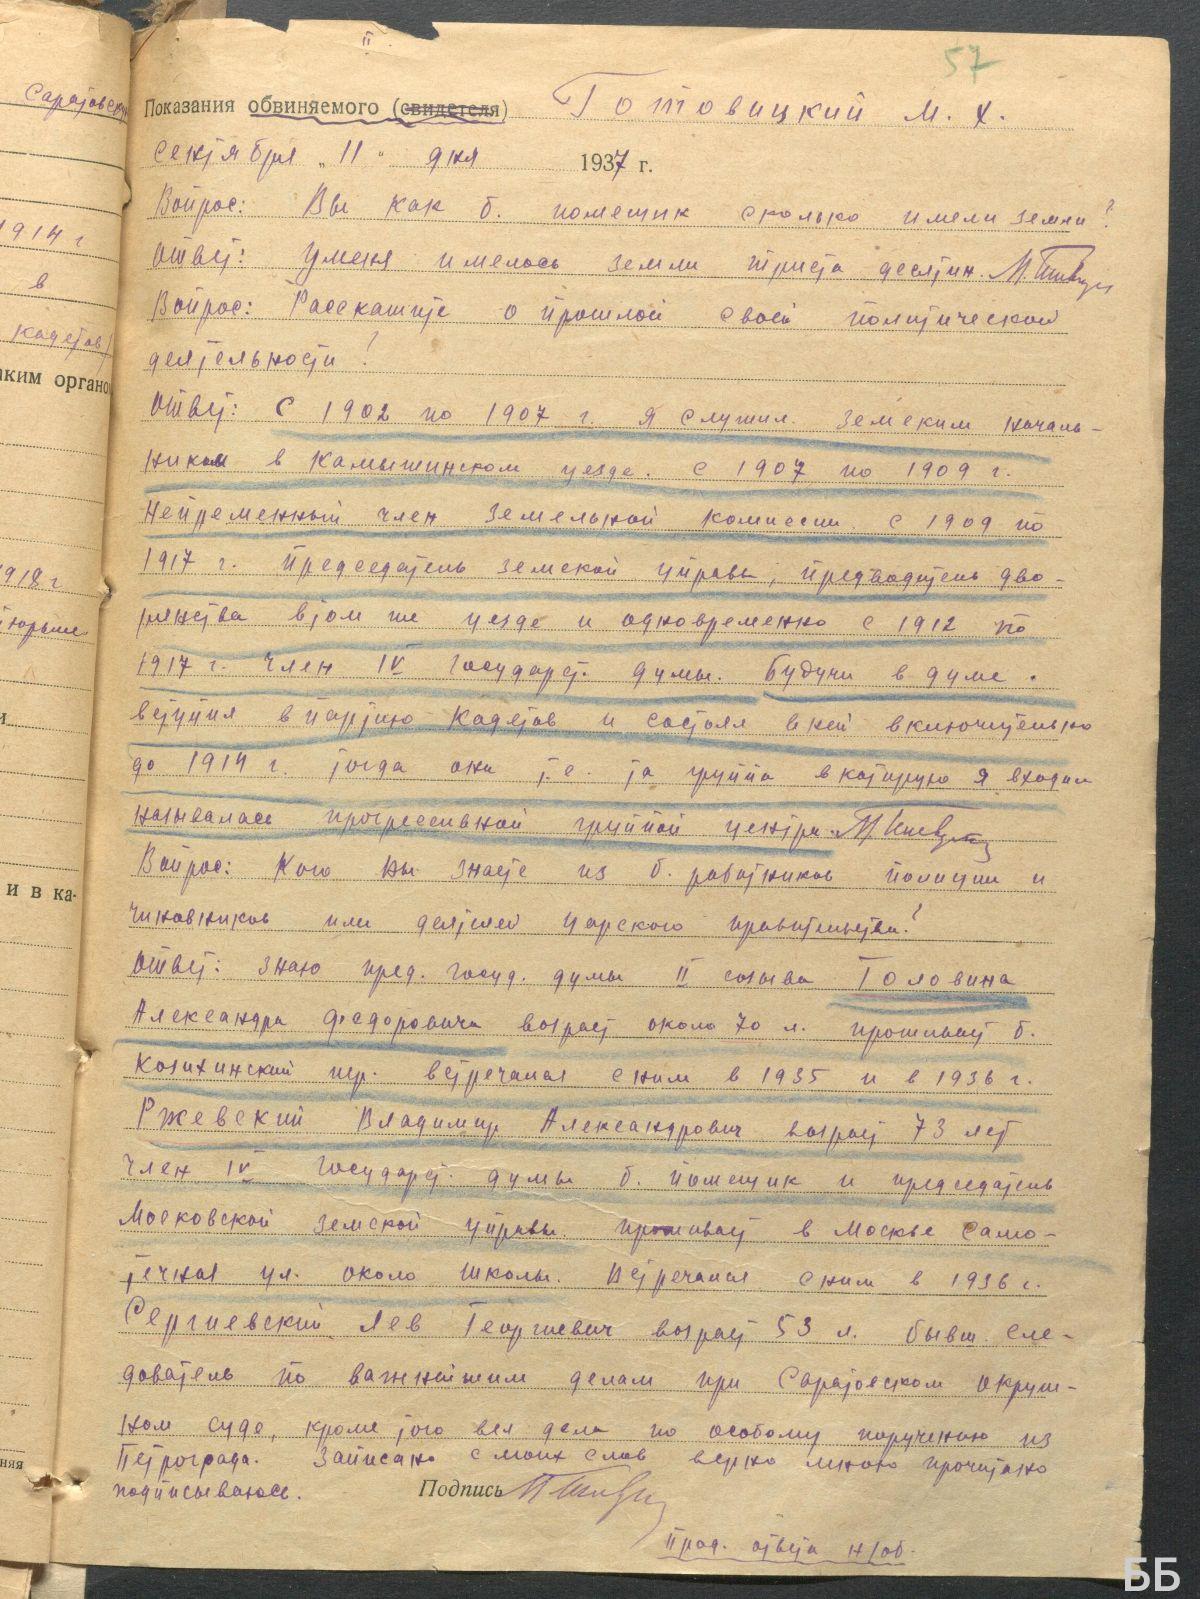 Саратовской
1914 г
в
кадетов
аким органом
1918 г
тюрьме
и
и в ка-
няя
II
57
Показания обвиняемого (свидетеля) Готовицкий М. Х.
сентября „11" дня 1937 г.
Вопрос: Вы как б. помещик сколько имели земли?
Ответ: У меня имелось земли триста десятин.
Вопрос: Расскажите о прошлой своей политической
деятельности!
Ответ: С 1902 по 1907 г. я служил земским началь-
ником в Камышинском уезде. С 1907 по 1909 г.
Непременный член земельной комиссии. С 1909 по
1917 г. председатель земской управы, предводитель дво-
рянства в том же уезде и одновременно с 1912 по
1917 г. член IV государст. думы. Будучи в думе
вступил в партию кадетов и состоял в ней включительно
до 1914 г. тогда она т.е. та группа в которую я входил
называлась прогрессивной группой центра.
Вопрос: Кого вы знаете из б. работников полиции и
чиновников или деятелей царского правительства?
Ответ: Знаю пред. госуд. думы II созыва Головина
Александра Федоровича возраст около 70 л. проживает б.
Козихинский пер. встречался с ним в 1935 и в 1936 г.
Ржевский Владимир Александрович возраст 73 лет
член IV государст. думы б. помещик и председатель
Московской земской управы проживает в Москве Само-
течная ул. около школы. Встречался с ним в 1936 г.
Сергиевский Лев Георгиевич возраст 53 л. бывш. сле-
дователь по важнейшим делам при Саратовском окруж-
ном суде, кроме того вел дела по особому поручению из
Петрограда. Записано с моих слов верно мною прочитано
подписываюсь. Подпись
Прод. ответа н/об.
ББ